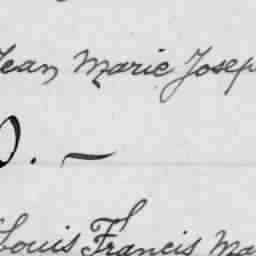 Jean Marie Josep
0. —
Louis Francis Ma